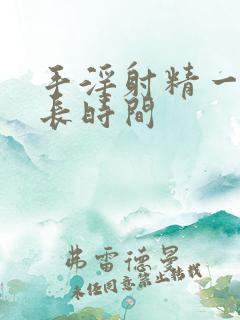 手淫射精一
長時間
弗雷德曼
未经同意禁止转载